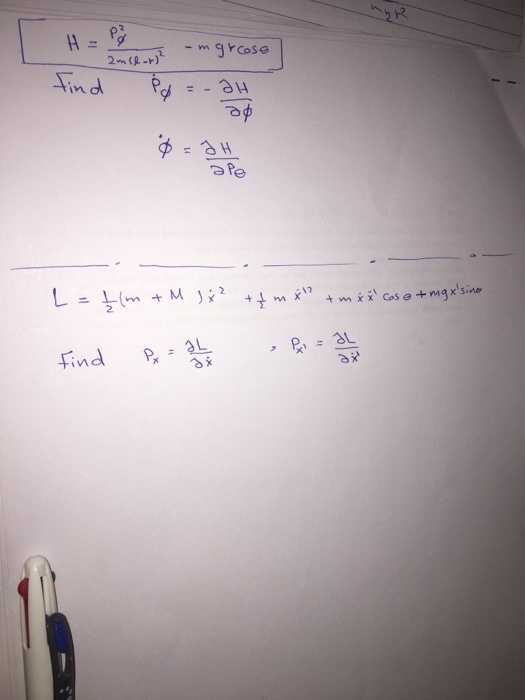 m₂r²
H = P_φ² / 2m(l-r)² - mgrcosθ
Find Ṗ_φ = - ∂H/∂φ
φ̇ = ∂H/∂P_θ
L = 1/2 (m + M) ẋ² + 1/2 m ẋ'² + m ẋ ẋ' cosθ + mgx'sinθ
Find P_x = ∂L/∂ẋ , P_x' = ∂L/∂ẋ'